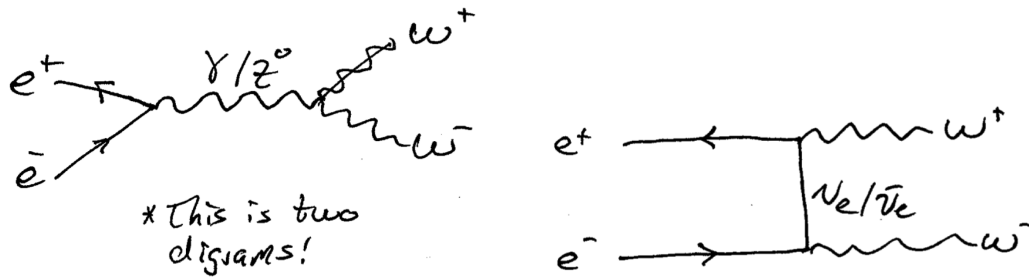 e⁺
γ/Z⁰
ω⁺
e⁻
ω⁻
*This is two
digrams!
e⁺
ω⁺
νe/ν̄e
e⁻
ω⁻